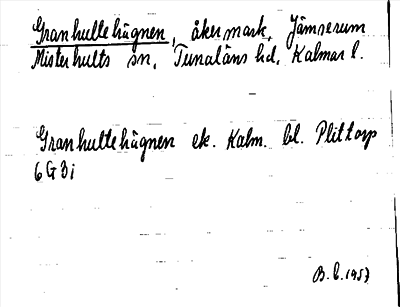 Granhultehägnen, åkermark, Jämserum
Misterhults sn, Tunaläns hd, Kalmar l.
Granhultehägnen ek. Kalm. bl. Plittorp
6G3i
B.L. 1957